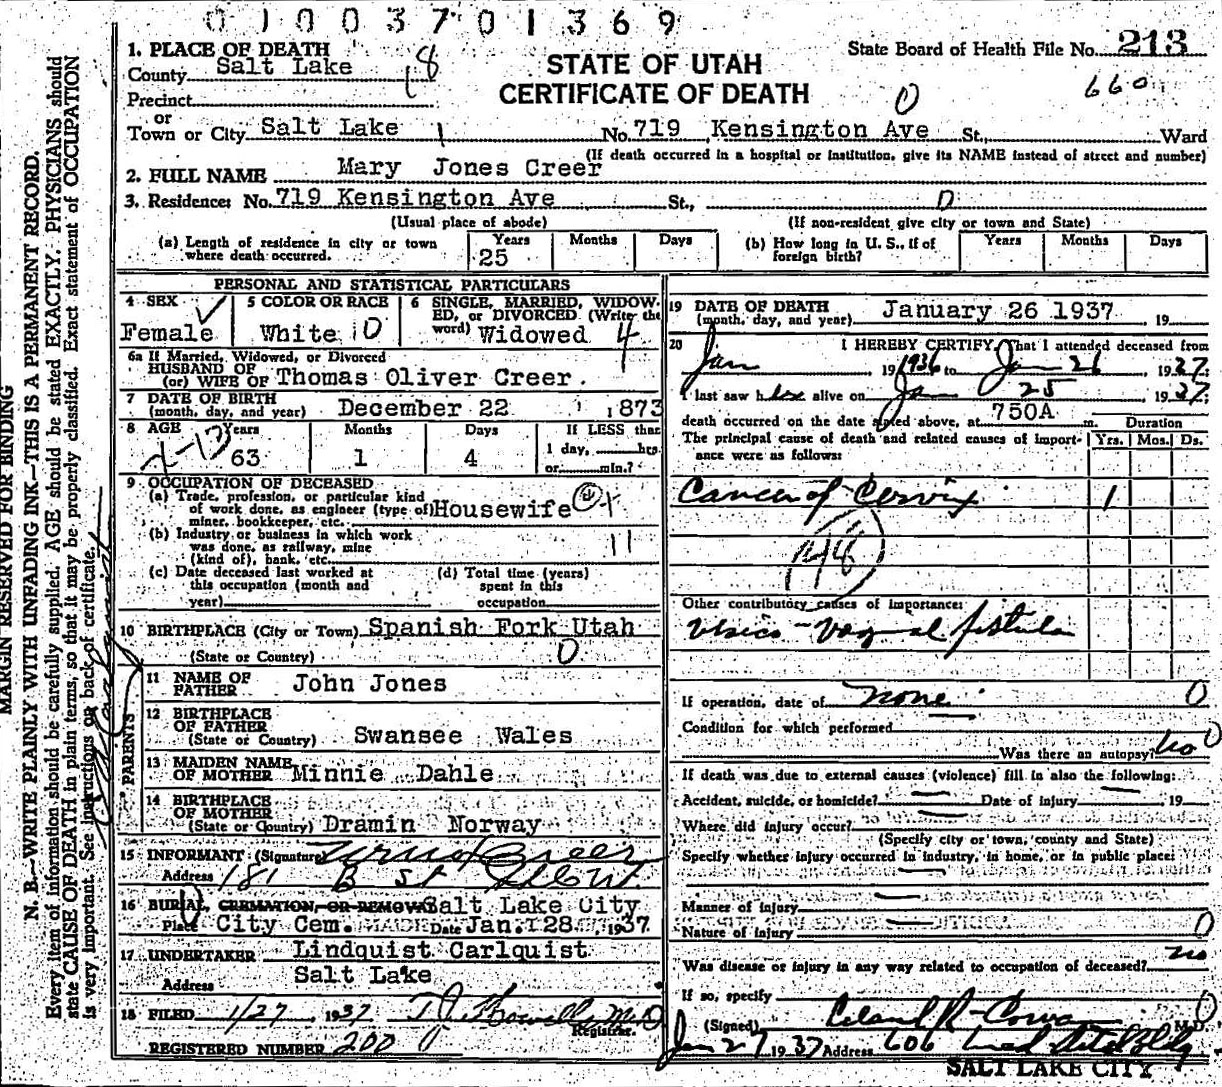 01003701369
1. PLACE OF DEATH
County Salt Lake 18
Precinct
or
Town or City Salt Lake 1
STATE OF UTAH
CERTIFICATE OF DEATH
State Board of Health File No. 213
660
0
No. 719 Kensington Ave St., Ward
(If death occurred in a hospital or institution, give its NAME instead of street and number)
2. FULL NAME Mary Jones Creer
3. Residence: No. 719 Kensington Ave St., 0
(Usual place of abode) (If non-resident give city or town and State)
(a) Length of residence in city or town where death occurred. Years 25 Months Days
(b) How long in U. S., if of foreign birth? Years Months Days
PERSONAL AND STATISTICAL PARTICULARS
4 SEX Female
5 COLOR OR RACE White 0
6 SINGLE, MARRIED, WIDOWED, or DIVORCED (Write the word) Widowed 4
6a If Married, Widowed, or Divorced
HUSBAND OF
(or) WIFE OF Thomas Oliver Creer.
7 DATE OF BIRTH
(month, day, and year) December 22 1873
8 AGE Years 63 Months 1 Days 4
If LESS than
1 day, hrs.
or min.?
9 OCCUPATION OF DECEASED
(a) Trade, profession, or particular kind
of work done, as engineer (type of)
miner, bookkeeper, etc. Housewife
(b) Industry or business in which work
was done, as railway, mine
(kind of), bank, etc. 11
(c) Date deceased last worked at
this occupation (month and
year)
(d) Total time (years)
spent in this
occupation
10 BIRTHPLACE (City or Town) Spanish Fork Utah
(State or Country) 0
PARENTS
11 NAME OF
FATHER John Jones
12 BIRTHPLACE
OF FATHER
(State or Country) Swansee Wales
13 MAIDEN NAME
OF MOTHER Minnie Dahle
14 BIRTHPLACE
OF MOTHER
(State or Country) Dramin Norway
15 INFORMANT (Signature) Creer
Address 181 B St
16 BURIAL, CREMATION, OR REMOVAL Salt Lake City
Place City Cem. Date Jan. 28, 1937
17 UNDERTAKER Lindquist Carlquist
Address Salt Lake
18 FILED 1/27, 1937 M.D.
Registrar.
REGISTERED NUMBER 200
19 DATE OF DEATH
(month, day, and year) January 26 1937 19
20 I HEREBY CERTIFY, That I attended deceased from
Jan 1936 to Jan 26 1937;
I last saw her alive on Jan 25 1937;
death occurred on the date stated above, at 750A m.
The principal cause of death and related causes of importance were as follows:
Duration
Yrs. Mos. Ds.
Cancer of Cervix 1
48
Other contributory causes of importance:
Vesico-Vaginal fistula
If operation, date of none 0
Condition for which performed
Was there an autopsy? no 0
If death was due to external causes (violence) fill in also the following:
Accident, suicide, or homicide? Date of injury 19
Where did injury occur?
(Specify city or town, county and State)
Specify whether injury occurred in industry, in home, or in public place:
Manner of injury
Nature of injury 0
Was disease or injury in any way related to occupation of deceased? no
If so, specify 0
(Signed) Leland R. Cowan M.D.
Jan 27 1937 Address 606
SALT LAKE CITY
MARGIN RESERVED FOR BINDING
N. B.—WRITE PLAINLY WITH UNFADING INK—THIS IS A PERMANENT RECORD.
Every item of information should be carefully supplied. AGE should be stated EXACTLY. PHYSICIANS should
state CAUSE OF DEATH in plain terms, so that it may be properly classified. Exact statement of OCCUPATION
is very important. See instructions on back of certificate.